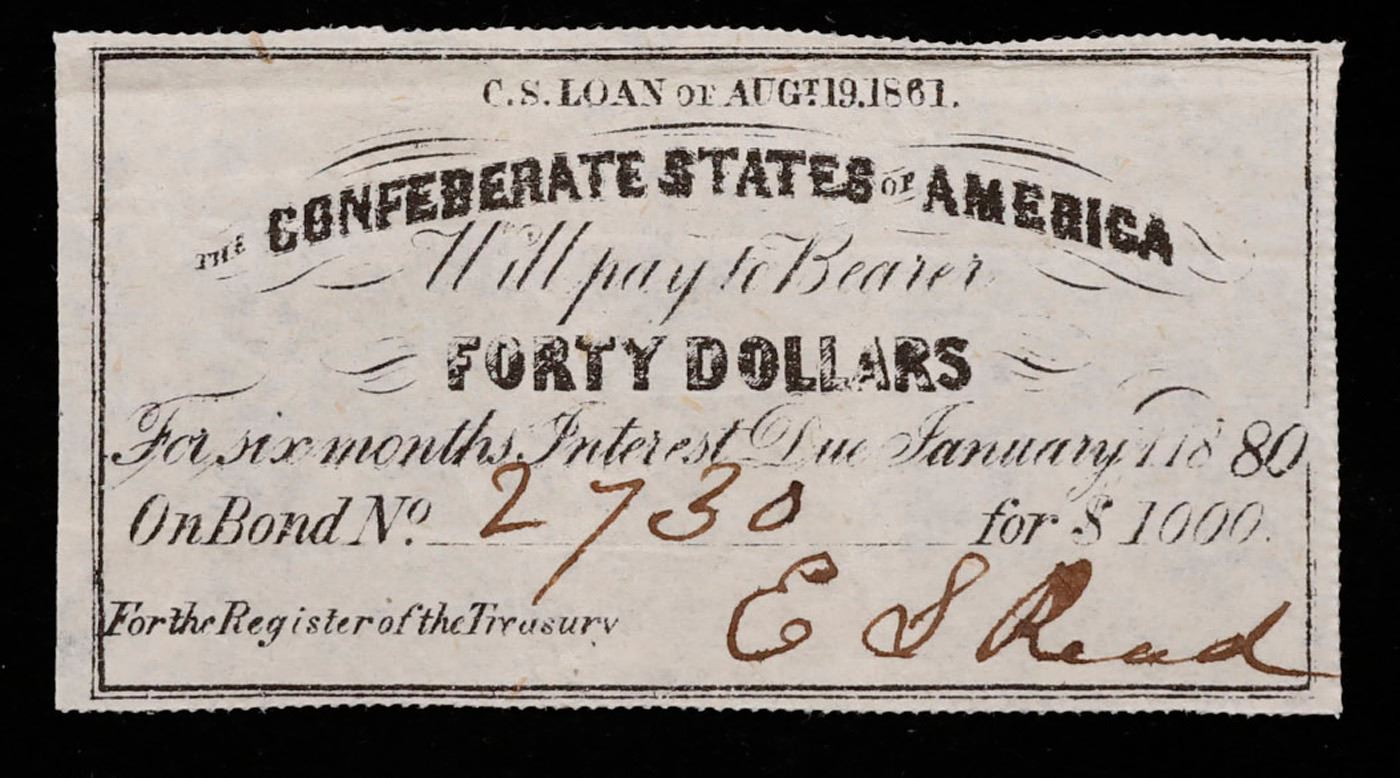 C.S. LOAN OF AUGT. 19. 1861.
THE CONFEDERATE STATES OF AMERICA
Will pay to Bearer
FORTY DOLLARS
For six months Interest Due January 1 1880
On Bond No. 2730 for $1000.
For the Register of the Treasury E S Read